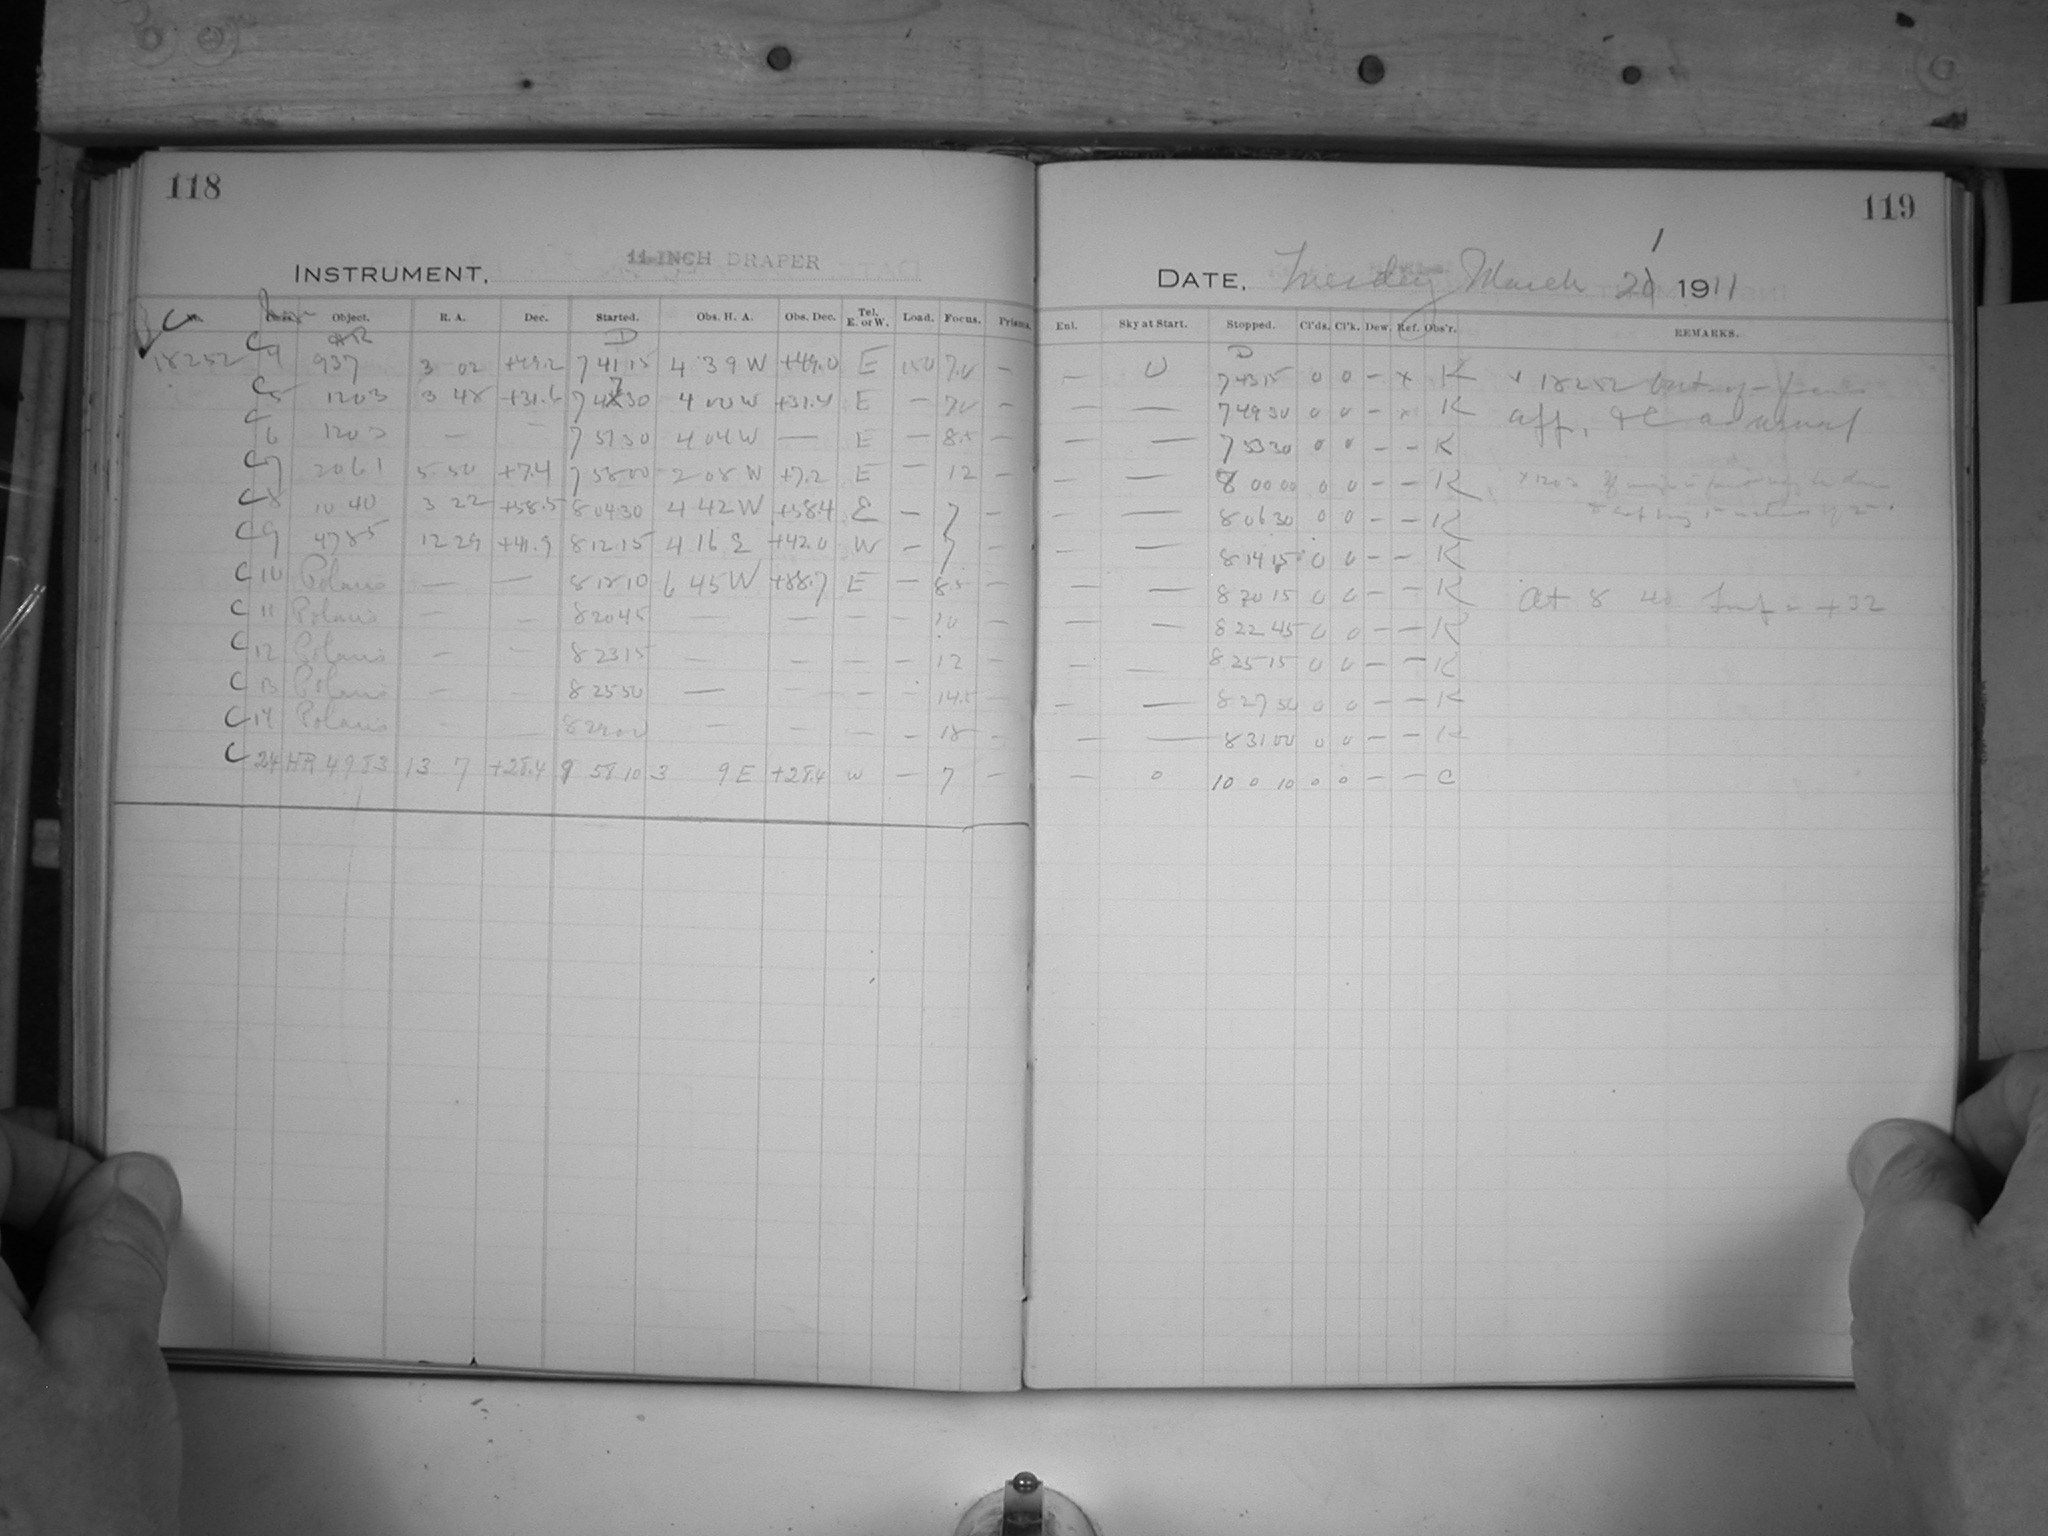 118
INSTRUMENT, 11-INCH DRAPER
No. Object. R. A. Dec. Started. Obs. H. A. Obs. Dec. Tel. E. or W. Load. Focus. Prisms.
HR D
18252 C 4 937 3 02 +49.2 7 41 15 4 39 W +49.0 E 150 7.0 —
C 5 1203 3 48 +31.6 7 47 30 4 00 W +31.4 E — 70 —
C 6 1203 — — 7 51 30 4 04 W — E — 8.5 —
C 7 2061 5 50 +7.4 7 58 00 2 08 W +7.2 E — 12 —
C 8 1040 3 22 +58.5 8 04 30 4 42 W +58.4 E — 7 —
C 9 4785 12 29 +41.9 8 12 15 4 16 E +42.0 W — 7 —
C 10 Polaris — — 8 18 10 6 45 W +88.7 E — 8.5 —
C 11 Polaris — — 8 20 45 — — — — 10 —
C 12 Polaris — — 8 23 15 — — — — 12 —
C 13 Polaris — — 8 25 50 — — — — 14.5 —
C 14 Polaris — — 8 29 00 — — — — 18 —
C 24 HR 4983 13 7 +28.4 9 58 10 3 9 E +28.4 W — 7 —
119
DATE, Tuesday March 21 1911
Enl. Sky at Start. Stopped. Cl'ds. Cl'k. Dew. Ref. Obs'r. REMARKS.
D
— 0 7 43 15 0 0 — x K x 18252 out of focus
— — 7 49 30 0 0 — x K aff, &c as usual
— — 7 53 30 0 0 — — K
— — 8 00 00 0 0 — — K x 1203
— — 8 06 30 0 0 — — K
— — 8 14 15 0 0 — — K
— — 8 20 15 0 0 — — K At 8 40 = +32
— — 8 22 45 0 0 — — K
— — 8 25 15 0 0 — — K
— — 8 27 50 0 0 — — K
— — 8 31 00 0 0 — — K
— 0 10 0 10 0 0 — — C